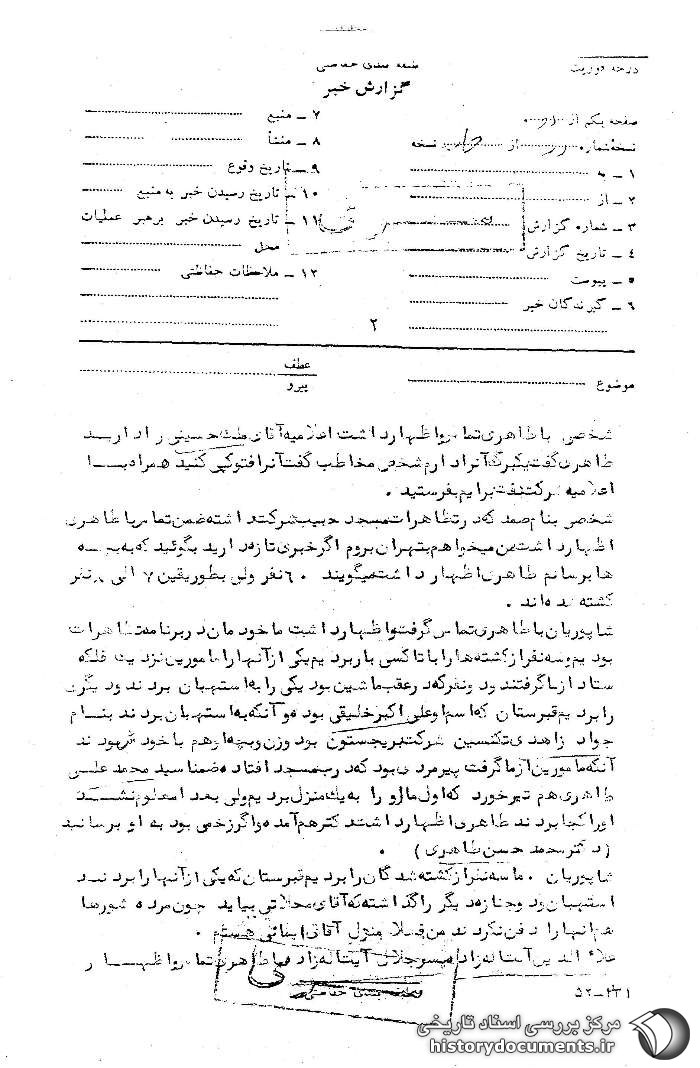 درجه فوریت
طبقه بندی حفاظتی
گزارش خبر
صفحه یکم از
نسخه شماره از نسخه
۱ ـ به
۲ ـ از
۳ ـ شماره گزارش
۴ ـ تاریخ گزارش
۵ ـ پیوست
۶ ـ گیرندگان خبر
۷ ـ منبع
۸ ـ منشأ
۹ ـ تاریخ وقوع
۱۰ ـ تاریخ رسیدن خبر به منبع
۱۱ ـ تاریخ رسیدن خبر برهبر عملیات
محل
۱۲ ـ ملاحظات حفاظتی
۲
موضوع
عطف
پیرو
شخصی با طاهری تماس و اظهار داشت اعلامیه آقای حسینی را دارید
طاهری گفت یک برگ آنرا دارم شخص مخاطب گفت آنرا فتوکپی کنید همراه با
اعلامیه شرکت نفت برایم بفرستید .
شخصی بنام صمد که در تظاهرات مسجد حبیب شرکت داشته ضمن تماس با طاهری
اظهار داشت من میخواهم بتهران بروم اگر خبری تازه دارید بگوئید که به
ها برسانم طاهری اظهار داشت میگویند ۶۰ نفر ولی بطور یقین ۷ الی ۸ نفر
کشته شده اند .
شاپوریان با طاهری تماس گرفت و اظهار داشت ما خودمان در برنامه تظاهرات
بودیم و سه نفر از کشته ها را با تاکسی بار بردیم یکی از آنها را مامورین نزدیک فلکه
ستاد از ما گرفتند و دو نفر که در عقب ماشین بود یکی را به استهبان بردند و دیگری
را بردیم قبرستان که اسم او علی اکبر خلیقی بود و آنکه به استهبان بردند بنام
جواد زاهدی تکنسین شرکت بریجستون بود و زن و بچه او هم با خود بودند
آنکه مامورین از ما گرفت پیرمردی بود که در مسجد افتاده ضمنا سید محمد علی
طاهری هم تیر خورد که اول ما او را به یک منزل بردیم ولی بعد معلوم نشد
او را کجا بردند طاهری اظهار داشت دکتر هم آمده و اگر زخمی بود به او برسانید
(دکتر محمد حسن طاهری) .
شاپوریان . ما سه نفر از کشته شدگان را بردیم قبرستان که یکی از آنها را بردند
استهبان و دو جنازه دیگر را گذاشته که آقای محلاتی بیاید چون مرده شورها
هم آنها را دفن نکردند من فعلا منزل آقای هستم .
علاء الدین آیت اله زاده پسر جلالی آیت اله زاده با طاهری تماس و اظهار
طبقه بندی حفاظتی
۵۲-۲۳۱
مرکز بررسی اسناد تاریخی
historydocuments.ir